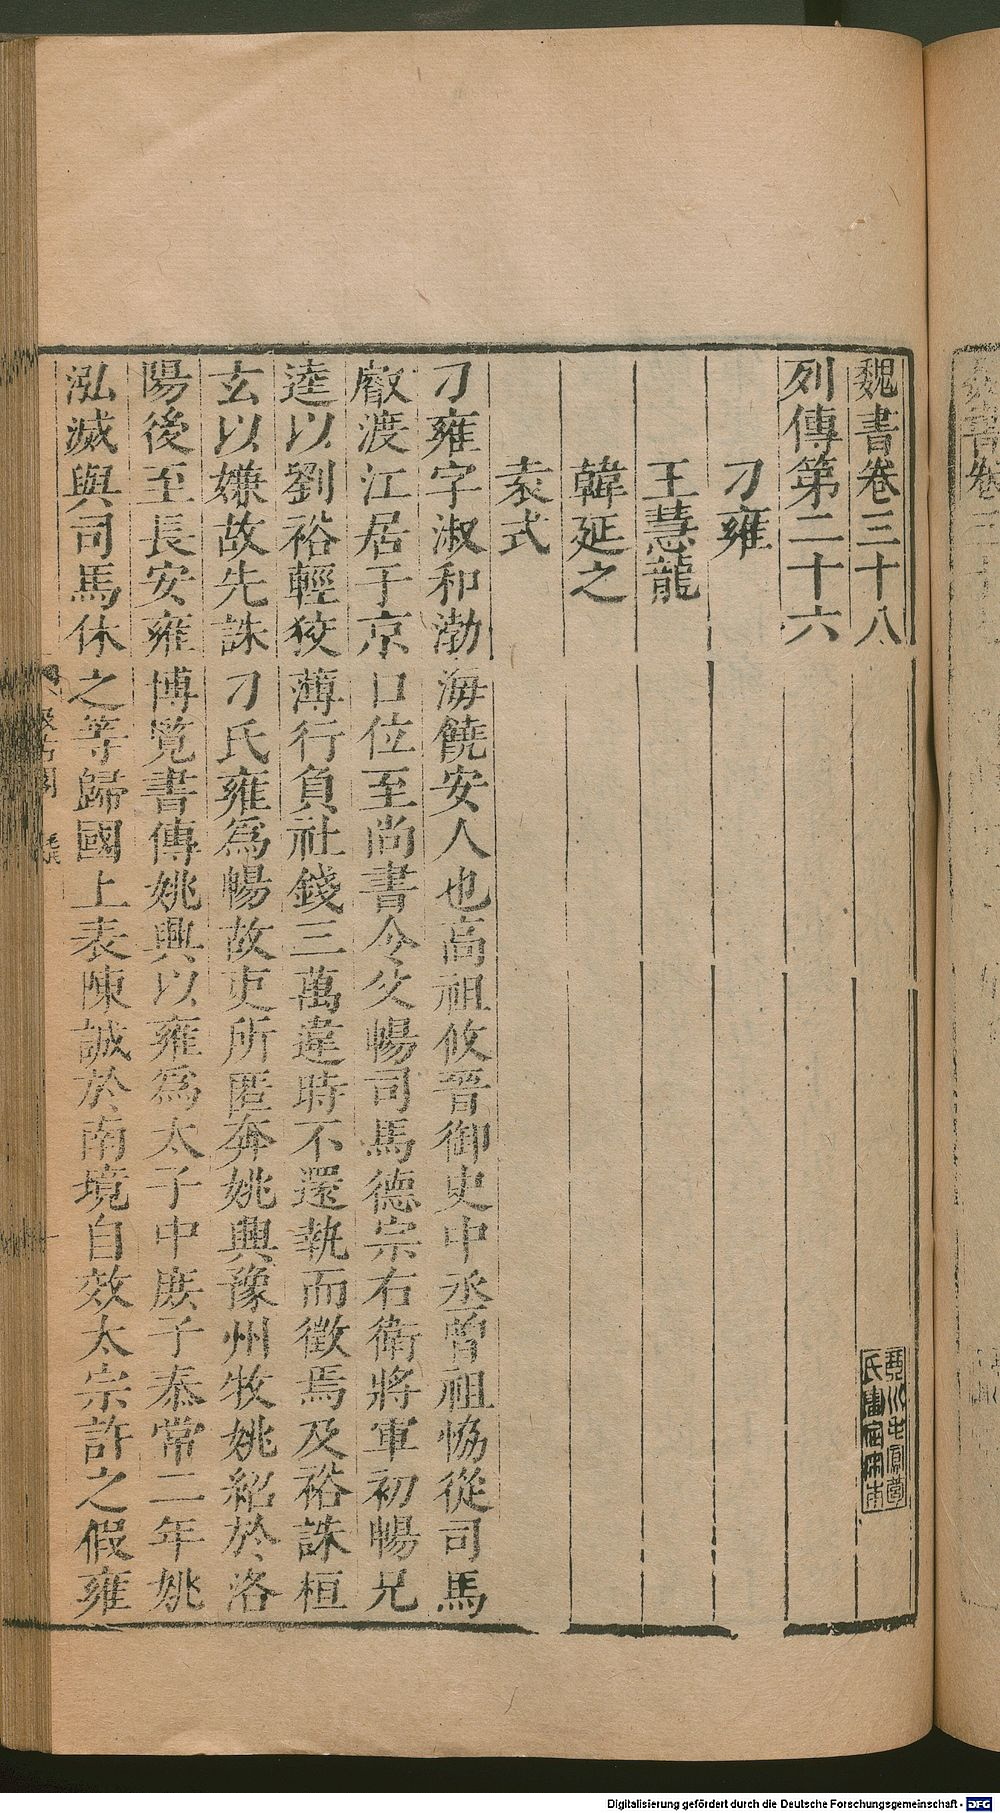 魏書卷三十八
列傳第二十六
刁雍
王慧龍
韓延之
袁式
刁雍字淑和渤海饒安人也高祖攸晉御史中丞曾祖恊從司馬
叡渡江居于京口位至尚書令父暢司馬德宗右衛將軍初暢兄
逵以劉裕輕狡薄行負社錢三萬違時不還執而徵焉及裕誅桓
玄以嫌故先誅刁氏雍爲暢故吏所匿奔姚興豫州牧姚紹於洛
陽後至長安雍博覽書傳姚興以雍爲太子中庶子泰常二年姚
泓滅與司馬休之等歸國上表陳誠於南境自效太宗許之假雍
Digitalisierung gefördert durch die Deutsche Forschungsgemeinschaft - DFG